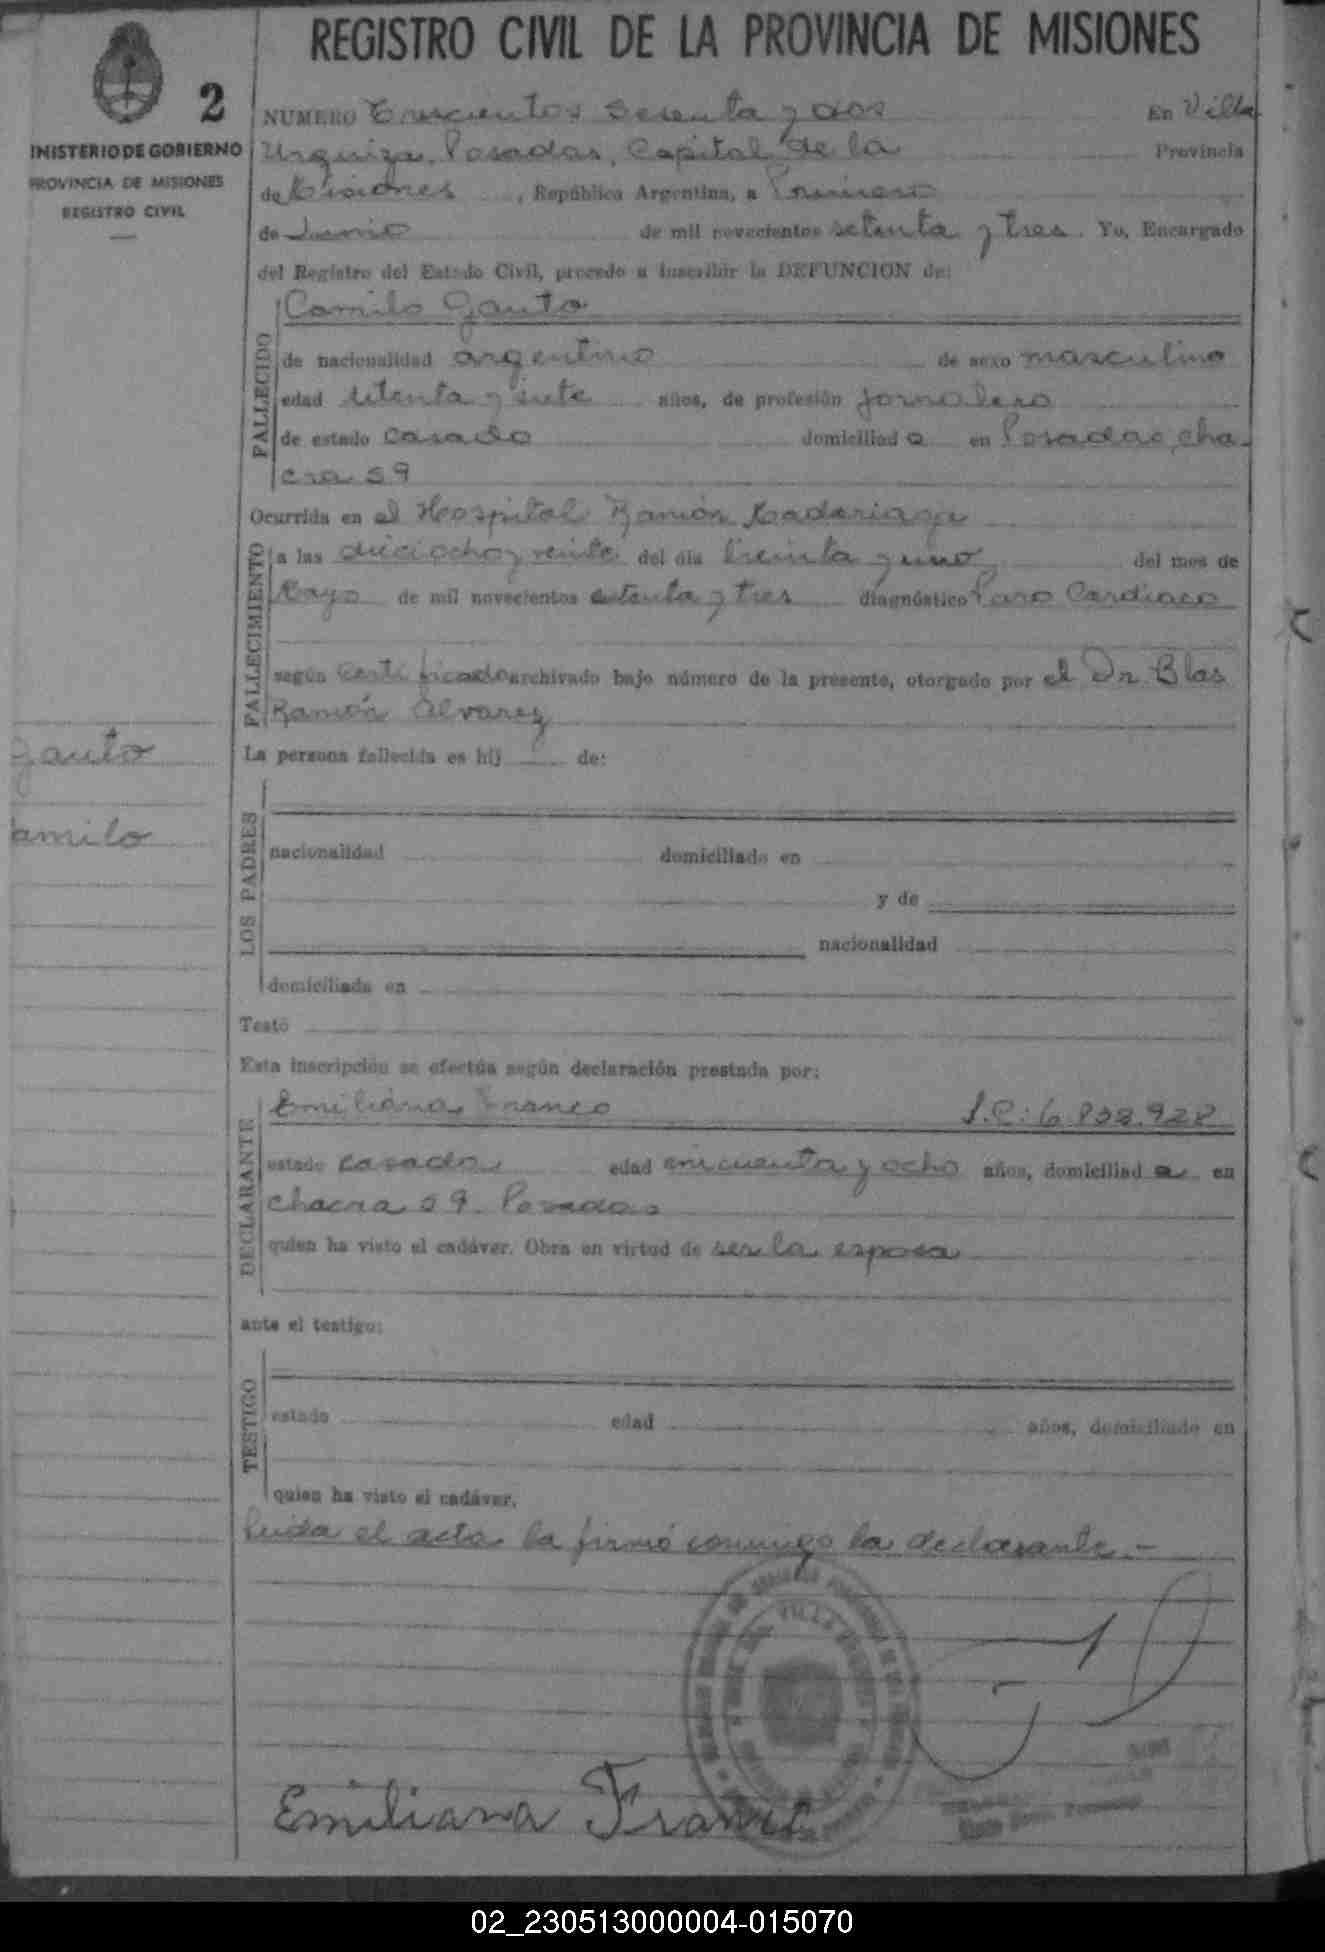 REGISTRO CIVIL DE LA PROVINCIA DE MISIONES
2
INISTERIO DE GOBIERNO
PROVINCIA DE MISIONES
REGISTRO CIVIL
NUMERO Trescientos Sesenta y dos En Villa
Urquiza, Posadas, Capital de la Provincia
de Misiones, República Argentina, a Primero
de Junio de mil novecientos setenta y tres. Yo, Encargado
del Registro del Estado Civil, procedo a inscribir la DEFUNCION de:
FALLECIDO
Camilo Gauto
de nacionalidad argentino de sexo masculino
edad setenta y siete años, de profesión jornalero
de estado casado domiciliad o en Posadas, cha-
cra 59
Ocurrida en el Hospital Ramón Madariaga
FALLECIMIENTO
a las dieciocho y veinte del día treinta y uno del mes de
Mayo de mil novecientos setenta y tres diagnóstico Paro Cardiaco
según certificado archivado bajo número de la presente, otorgado por el Dr. Blas
Ramón Alvarez
Gauto
amilo
La persona fallecida es hij de:
LOS PADRES
nacionalidad domiciliado en
y de
nacionalidad
domiciliada en
Testó
Esta inscripción se efectúa según declaración prestada por:
DECLARANTE
Emiliana Franco L.C: 6.838.928
estado casada edad cincuenta y ocho años, domiciliad a en
chacra 59. Posadas
quien ha visto el cadáver. Obra en virtud de ser la esposa
ante el testigo:
TESTIGO
estado edad años, domiciliado en
quien ha visto el cadáver.
Leida el acta la firmó conmigo la declarante.-
VILLA
Emiliana Franco
02_230513000004-015070